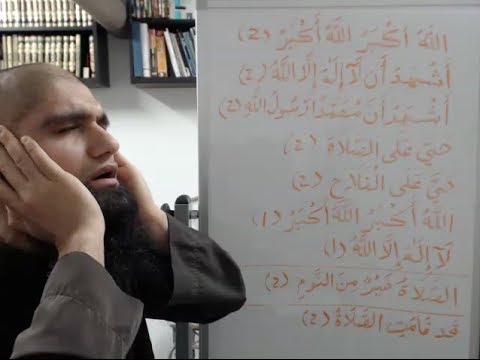 اللَّهُ أَكْبَرُ اللَّهُ أَكْبَرُ (2)
أَشْهَدُ أَن لَّآ إِلَٰهَ إِلَّا اللَّهُ (2)
أَشْهَدُ أَنَّ مُحَمَّدًا رَسُولُ اللَّهِ (2)
حَيَّ عَلَى الصَّلَاةِ (2)
حَيَّ عَلَى الْفَلَاحِ (2)
اللَّهُ أَكْبَرُ اللَّهُ أَكْبَرُ (1)
لَآ إِلَٰهَ إِلَّا اللَّهُ (1)
الصَّلَاةُ خَيْرٌ مِنَ النَّوْمِ (2)
قَدْ قَامَتِ الصَّلَاةُ (2)